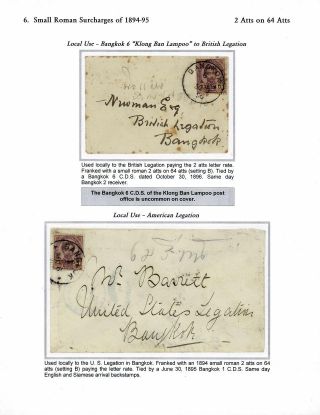 6. Small Roman Surcharges of 1894-95 2 Atts on 64 Atts
Local Use – Bangkok 6 "Klong Ban Lampoo" to British Legation
Newman Esq
British Legation
Bangkok
Used locally to the British Legation paying the 2 atts letter rate.
Franked with a small roman 2 atts on 64 atts (setting B). Tied by
a Bangkok 6 C.D.S. dated October 30, 1896. Same day
Bangkok 2 receiver.
The Bangkok 6 C.D.S. of the Klong Ban Lampoo post
office is uncommon on cover.
Local Use – American Legation
Mr. Barrett
United States Legation
Bangkok
Used locally to the U. S. Legation in Bangkok. Franked with an 1894 small roman 2 atts on 64
atts (setting B) paying the letter rate. Tied by a June 30, 1895 Bangkok 1 C.D.S. Same day
English and Siamese arrival backstamps.